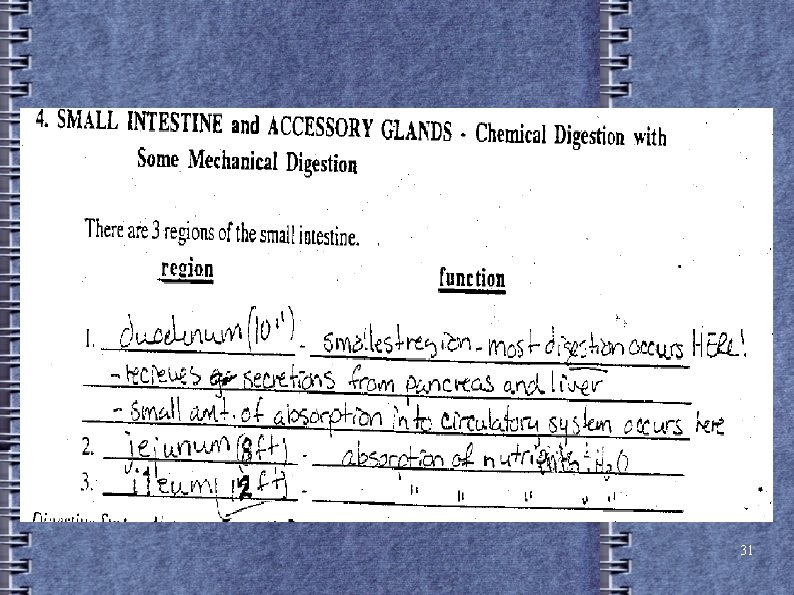 4. SMALL INTESTINE and ACCESSORY GLANDS - Chemical Digestion with
Some Mechanical Digestion
There are 3 regions of the small intestine.
region function
1. duodenum (10") - smallest region - most digestion occurs HERE!
- recieves secretions from pancreas and liver
- small amt. of absorption into circulatory system occurs here
2. jejunum (8ft) - absorption of nutrients : H2O
3. ileum (12ft) - " " " " "
31